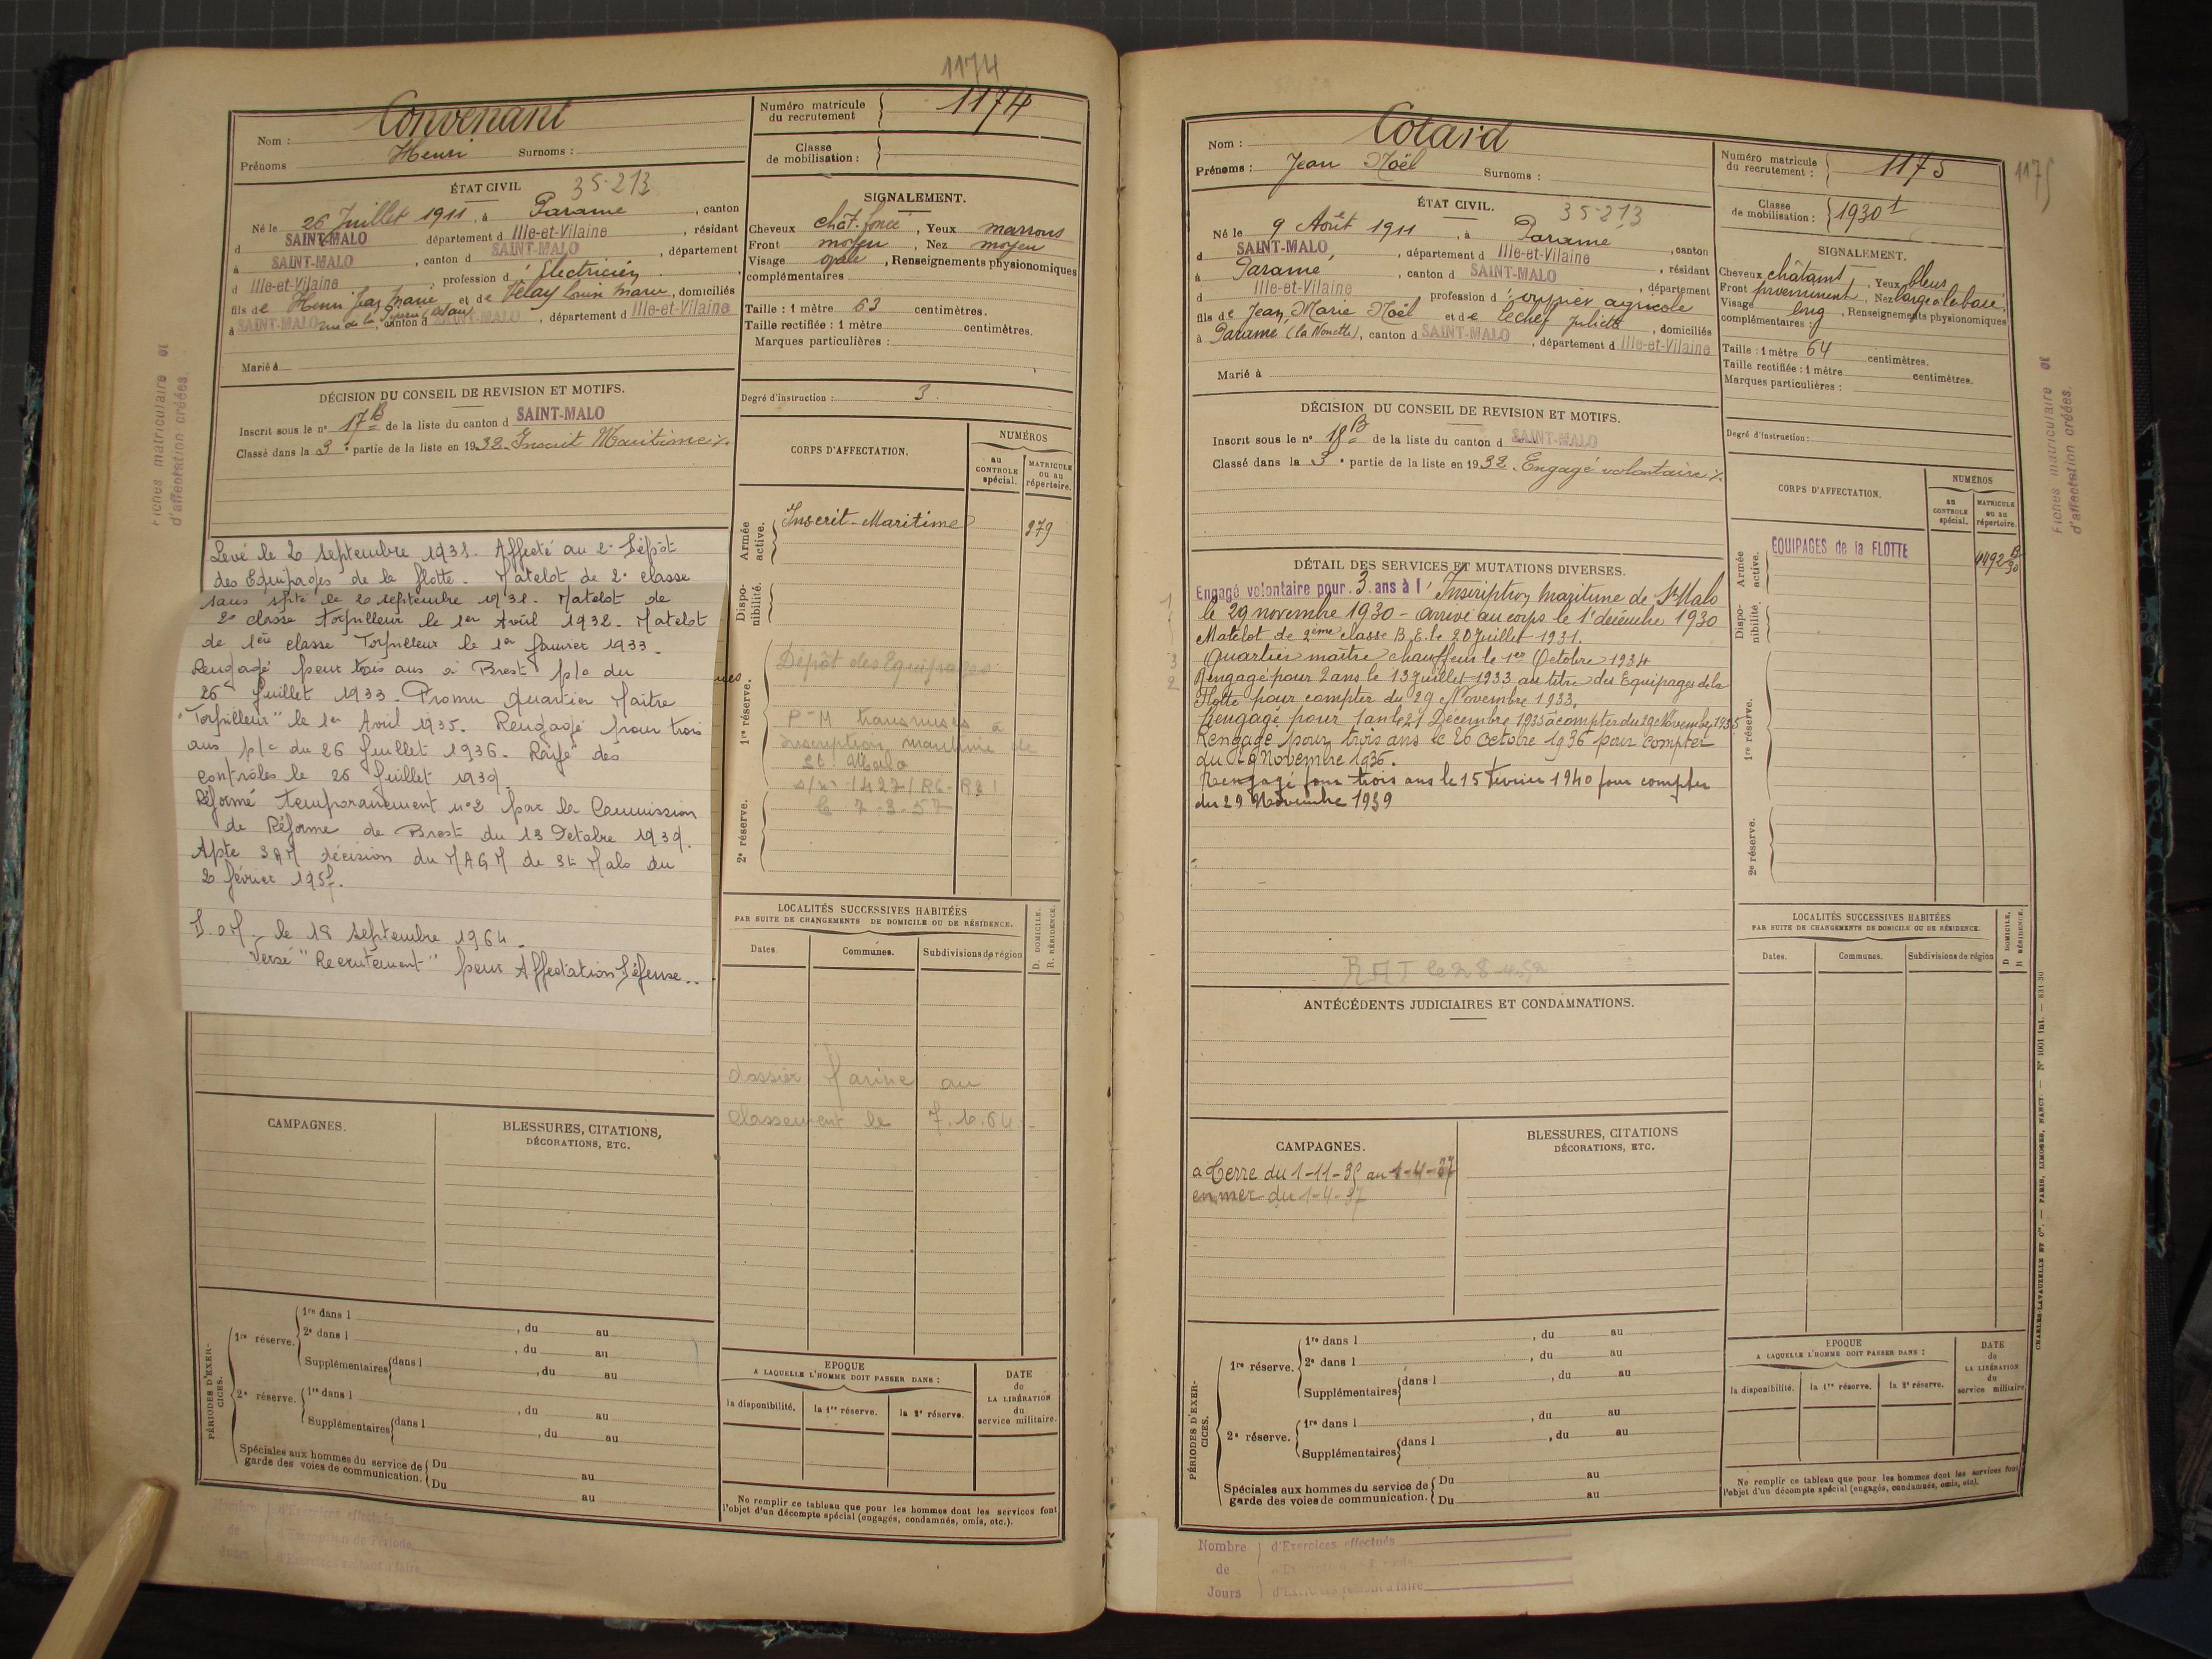 1174
Nom : Convenant
Prénoms Henri Surnoms :
Numéro matricule du recrutement 1174
Classe de mobilisation :
ÉTAT CIVIL 35-213
Né le 26 Juillet 1911, à Paramé, canton
d SAINT-MALO département d Ille-et-Vilaine, résidant
à SAINT-MALO, canton d SAINT-MALO, département
d Ille-et-Vilaine, profession d'Electricien
fils de Henri Jean Marie et de Velay Louise Marie, domiciliés
à SAINT-MALO rue de la, canton d SAINT-MALO, département d Ille-et-Vilaine
Marié à
SIGNALEMENT.
Cheveux chât. foncé, Yeux marrons
Front moyen, Nez moyen
Visage ovale, Renseignements physionomiques
complémentaires
Taille : 1 mètre 63 centimètres.
Taille rectifiée : 1 mètre centimètres.
Marques particulières :
Degré d'instruction : 3.
DÉCISION DU CONSEIL DE REVISION ET MOTIFS.
Inscrit sous le n° 17 B de la liste du canton d SAINT-MALO
Classé dans la 3e partie de la liste en 1932 Inscrit Maritime
Fiches matriculaire et
d'affectation créées.
CORPS D'AFFECTATION.
NUMÉROS
au CONTROLE spécial.
MATRICULE ou au répertoire.
Armée active.
Inscrit-Maritime 279
Dispo-nibilité.
1re réserve.
Dépôt des Equipages
P-M transmises à
Inscription maritime de
St Malo
s/n° 1427/R6-R21
le 7-3-57
2e réserve.
Levé le 2 septembre 1931. Affecté au 2e Dépôt
des Equipages de la flotte. Matelot de 2e classe
sans spté le 2 septembre 1931. Matelot de
2e classe torpilleur le 1er Avril 1932. Matelot
de 1ère classe Torpilleur le 1er Janvier 1933.
Rengagé pour trois ans à Brest p/c du
26 Juillet 1933. Promu Quartier Maître
"Torpilleur" le 1er Avril 1935. Rengagé pour trois
ans p/c du 26 Juillet 1936. Rayé des
contrôles le 26 Juillet 1939.
Réformé temporairement n°2 par la Commission
de Réforme de Brest du 13 Octobre 1939.
Apte SAM décision du MAGM de St Malo du
2 février 1957.
D.O.M. le 18 septembre 1964.
Versé "Recrutement" pour Affectation Défense..
LOCALITÉS SUCCESSIVES HABITÉES
PAR SUITE DE CHANGEMENTS DE DOMICILE OU DE RÉSIDENCE.
D. DOMICILE.
R. RÉSIDENCE.
Dates. Communes. Subdivisions de région
dossier Marine au
classement le 7.10.64
CAMPAGNES.
BLESSURES, CITATIONS,
DÉCORATIONS, ETC.
PÉRIODES D'EXER-CICES.
1re réserve. 1re dans l, du au
2e dans l, du au
Supplémentaires dans l, du au
2e réserve. 1re dans l, du au
Supplémentaires dans l, du au
Spéciales aux hommes du service de garde des voies de communication. Du au
Du au
EPOQUE
A LAQUELLE L'HOMME DOIT PASSER DANS :
la disponibilité. la 1re réserve. la 2e réserve.
DATE de LA LIBÉRATION du service militaire.
Ne remplir ce tableau que pour les hommes dont les services font
l'objet d'un décompte spécial (engagés, condamnés, omis, etc.).
Nombre de Jours
d'Exercices effectués
d'Exemption de Période
d'Exercices restant à faire
1175
Nom : Cotard
Prénoms : Jean Noël Surnoms :
Numéro matricule du recrutement : 1175
Classe de mobilisation : 1930
ÉTAT CIVIL. 35-213
Né le 9 Août 1911, à Paramé, canton
d SAINT-MALO, département d Ille-et-Vilaine, résidant
à Paramé, canton d SAINT-MALO, département
d Ille-et-Vilaine profession d'ouvrier agricole
fils de Jean, Marie Noël et de Lechef Juliette, domiciliés
à Paramé (la Nouette), canton d SAINT-MALO, département d Ille-et-Vilaine
Marié à
SIGNALEMENT.
Cheveux châtains, Yeux bleus
Front proéminent, Nez large à la base
Visage long, Renseignements physionomiques
complémentaires :
Taille : 1 mètre 64 centimètres.
Taille rectifiée : 1 mètre centimètres.
Marques particulières :
Degré d'instruction :
DÉCISION DU CONSEIL DE REVISION ET MOTIFS.
Inscrit sous le n° 18 B de la liste du canton d SAINT-MALO
Classé dans la 3e partie de la liste en 1932. Engagé volontaire
Fiches matriculaire et
d'affectation créées.
CORPS D'AFFECTATION.
NUMÉROS
au CONTROLE spécial.
MATRICULE ou au répertoire.
Armée active.
EQUIPAGES de la FLOTTE
Dispo-nibilité.
1re réserve.
2e réserve.
DÉTAIL DES SERVICES ET MUTATIONS DIVERSES.
Engagé volontaire pour 3 ans à l'Inscription Maritime de St Malo
le 29 novembre 1930 - arrivé au corps le 1er décembre 1930
Matelot de 2ème classe B.E. le 20 Juillet 1931.
Quartier maître chauffeur le 1er Octobre 1934
Rengagé pour 2 ans le 13 Juillet 1933 au titre des Equipages de la
Flotte pour compter du 29 Novembre 1933.
Rengagé pour 1 an le 21 Décembre 1935 à compter du 29 Novembre 1935
Rengagé pour trois ans le 26 Octobre 1936 pour compter
du 29 Novembre 1936.
Rengagé pour trois ans le 15 Février 1940 pour compter
du 29 Novembre 1939
RAT le 28-4-52
ANTÉCÉDENTS JUDICIAIRES ET CONDAMNATIONS.
LOCALITÉS SUCCESSIVES HABITÉES
PAR SUITE DE CHANGEMENTS DE DOMICILE OU DE RÉSIDENCE.
D DOMICILE,
R RÉSIDENCE.
Dates. Communes. Subdivisions de région
CAMPAGNES.
à Terre du 1-11-35 au 1-4-37
en mer du 1-4-37
BLESSURES, CITATIONS
DÉCORATIONS, ETC.
PÉRIODES D'EXER-CICES.
1re réserve. 1re dans l, du au
2e dans l, du au
Supplémentaires dans l, du au
2e réserve. 1re dans l, du au
Supplémentaires dans l, du au
Spéciales aux hommes du service de garde des voies de communication. Du au
Du au
EPOQUE
A LAQUELLE L'HOMME DOIT PASSER DANS :
la disponibilité. la 1re réserve. la 2e réserve.
DATE de LA LIBÉRATION du service militaire
Ne remplir ce tableau que pour les hommes dont les services font
l'objet d'un décompte spécial (engagés, condamnés, omis, etc).
CHARLES-LAVAUZELLE ET Cie. — PARIS, LIMOGES, NANCY — N° 1001 ini. — 831-30
Nombre de Jours
d'Exercices effectués
d'Exercices restant à faire